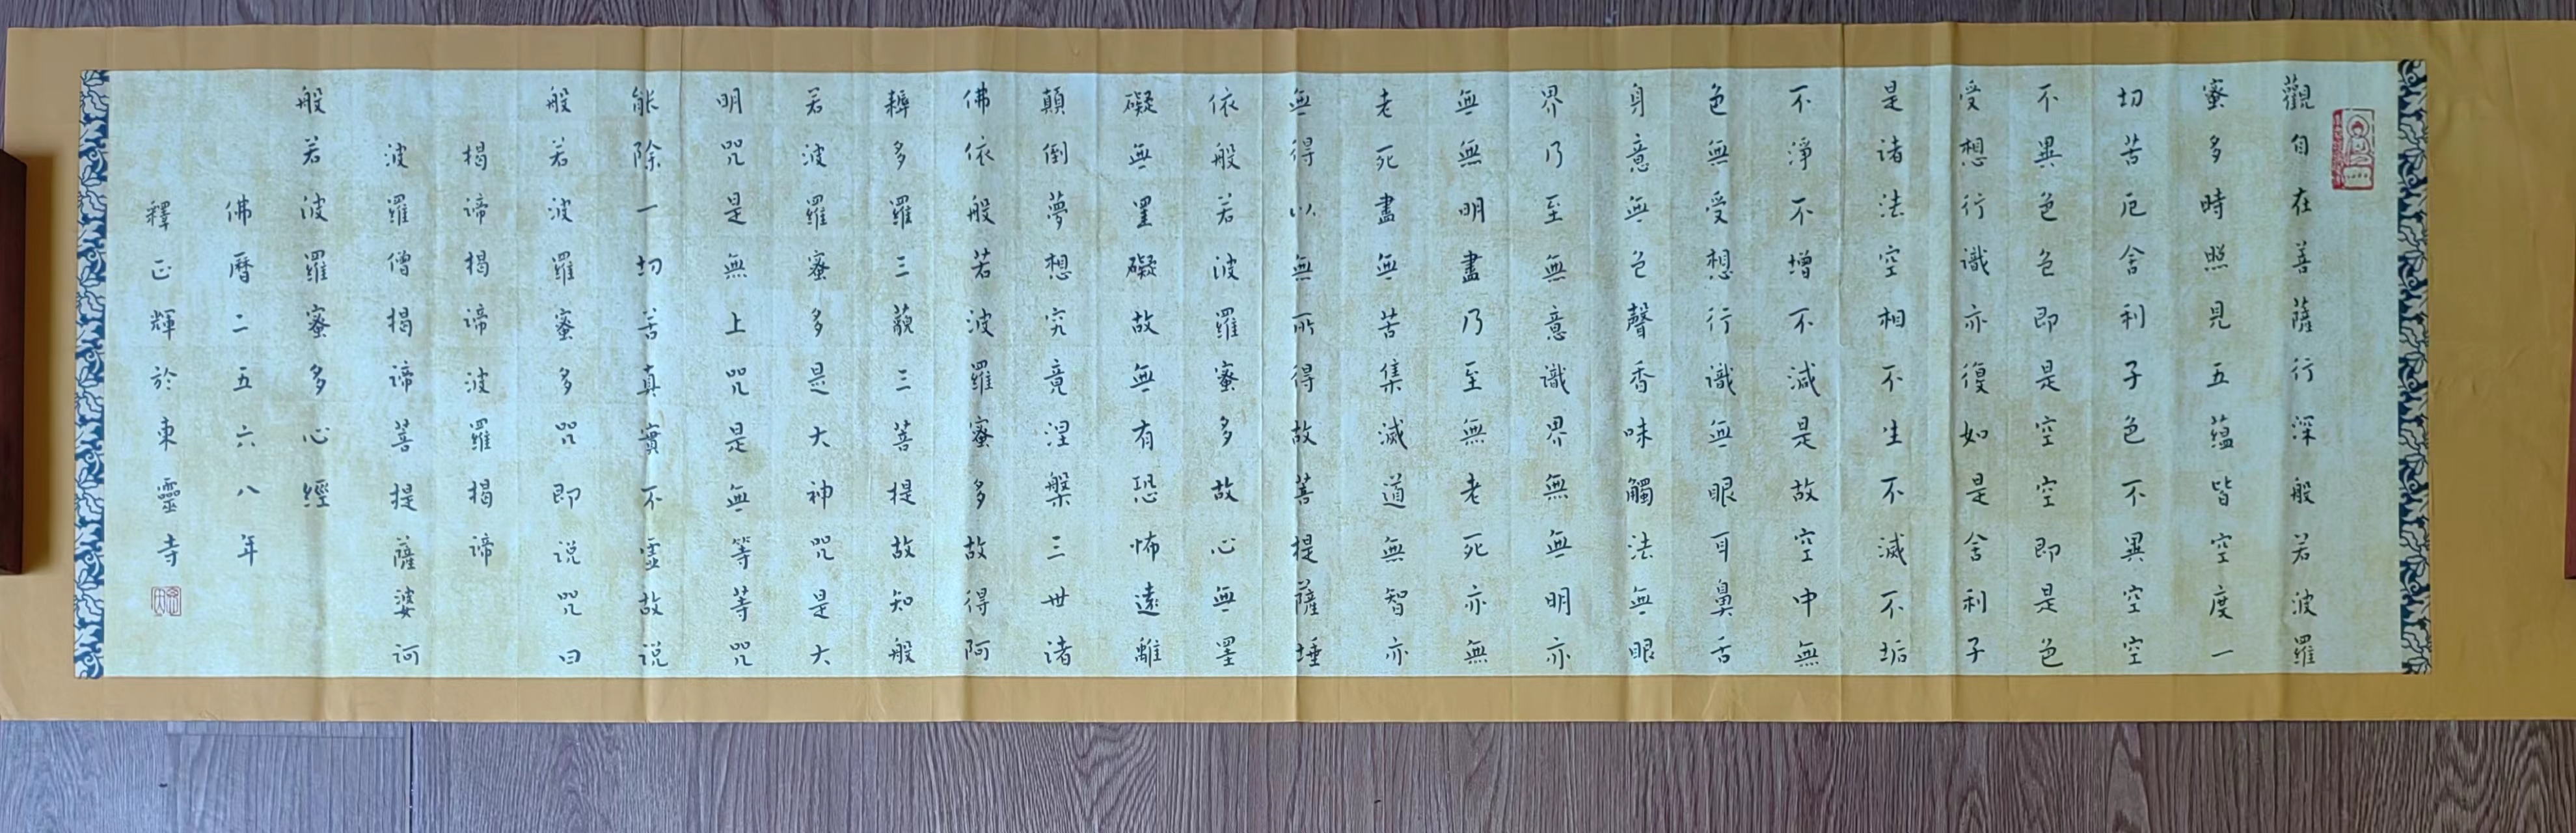 觀自在菩薩行深般若波羅
蜜多時照見五蘊皆空度一
切苦厄舍利子色不異空空
不異色色即是空空即是色
受想行識亦復如是舍利子
是诸法空相不生不滅不垢
不淨不增不減是故空中無
色無受想行識無眼耳鼻舌
身意無色聲香味觸法無眼
界乃至無意識界無無明亦
無無明盡乃至無老死亦無
老死盡無苦集滅道無智亦
無得以無所得故菩提薩埵
依般若波羅蜜多故心無罣
礙無罣礙故無有恐怖遠離
顛倒夢想究竟涅槃三世诸
佛依般若波羅蜜多故得阿
耨多羅三藐三菩提故知般
若波羅蜜多是大神咒是大
明咒是無上咒是無等等咒
能除一切苦真實不虛故说
般若波羅蜜多咒即说咒曰
揭諦揭諦波羅揭諦
波羅僧揭諦菩提薩婆訶
般若波羅蜜多心經
佛曆二五六八年
釋正輝於東靈寺